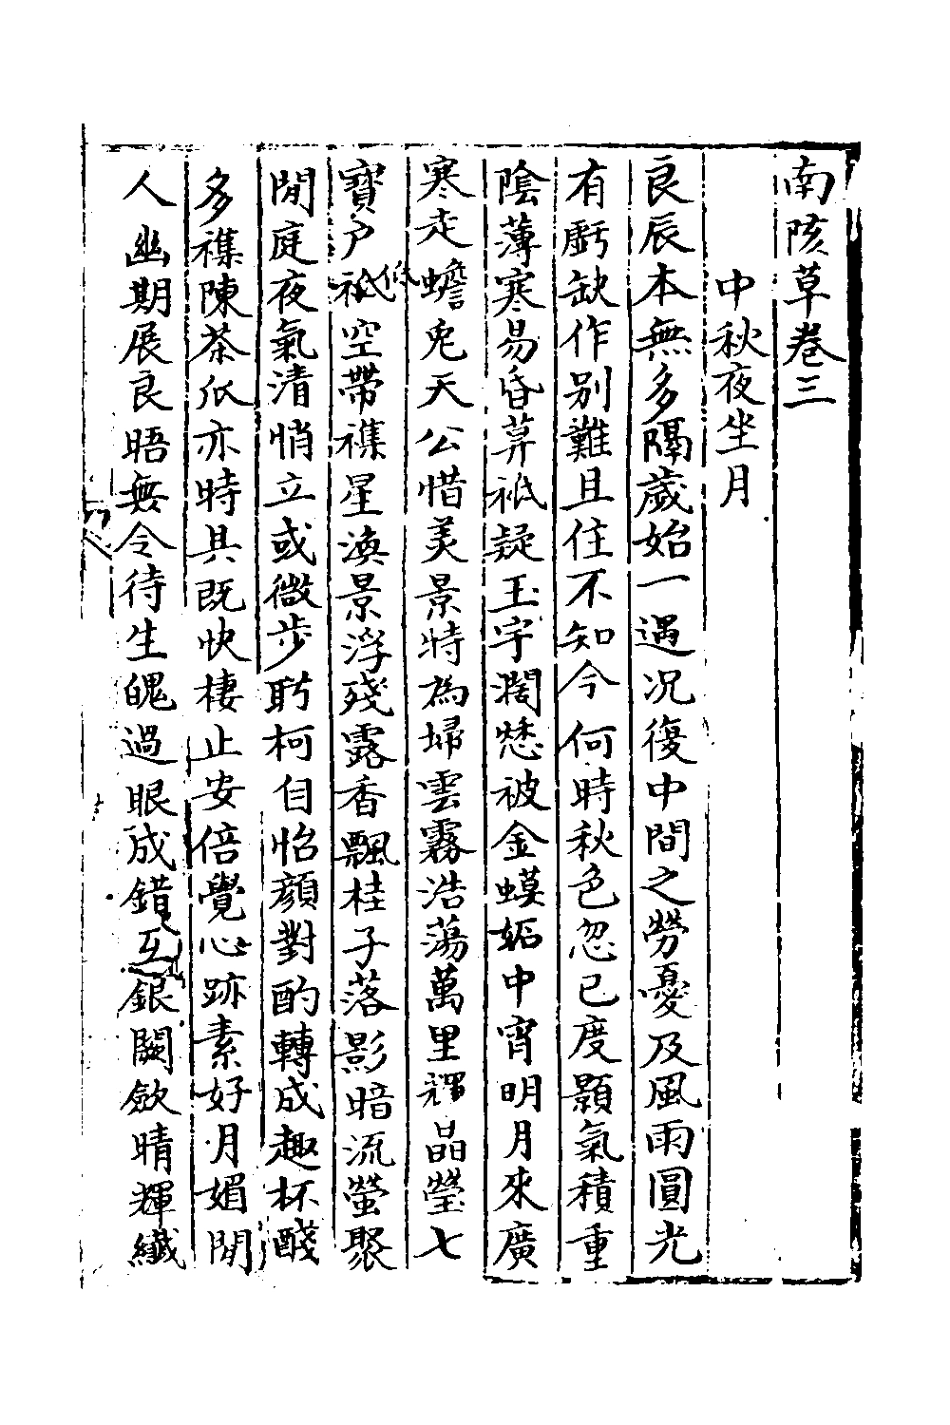 南陔草卷三
中秋夜坐月
良辰本無多隔歲始一遇况復中間之勞憂及風雨圓光
有虧缺作别難且住不知今何時秋色忽已度顥氣積重
陰薄寒易昏莽祇疑玉宇濶愁被金蟆妬中宵明月來廣
寒走蟾兎天公惜美景特為埽雲霧浩蕩萬里穉晶瑩七
寳户祇低空帶襍星漁景浮殘露香飄桂子落影暗流螢聚
閒庭夜氣清悄立或微步聊柯自怡顔對酌轉成趣杯醆
多襍陳茶瓜亦時具既快棲止安倍覺心跡素好月媚閒
人幽期展良晤無令待生魄過眼成錯互銀闕斂晴輝纖